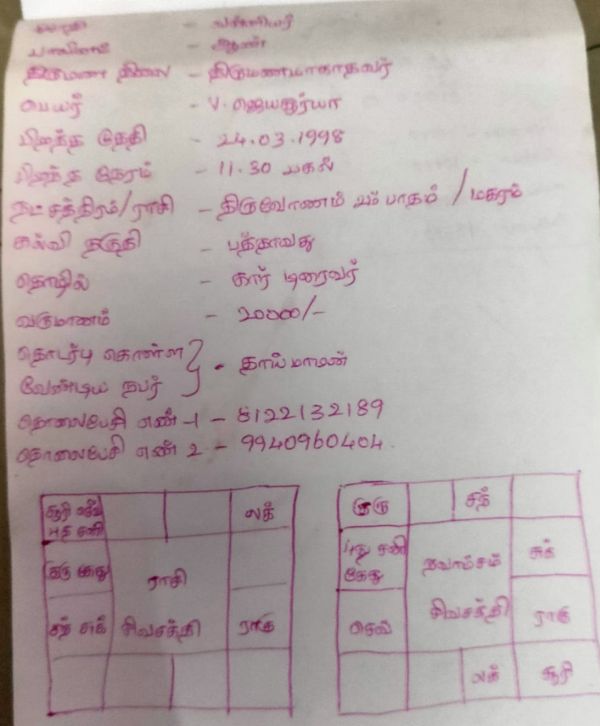 சாதி - வன்னியர்
பாலினம் - ஆண்
திருமண நிலை - திருமணமாகாதவர்
பெயர் - V. ஜெயசூர்யா
பிறந்த தேதி - 24.03.1998
பிறந்த நேரம் - 11.30 பகல்
நட்சத்திரம்/ராசி - திருவோணம் 2ம் பாதம் / மகரம்
கல்வி தகுதி - பத்தாவது
தொழில் - கார் டிரைவர்
வருமானம் - 20000/-
தொடர்பு கொள்ள
வேண்டிய நபர் } - தாய்மாமன்
தொலைபேசி எண்-1 - 8122132189
தொலைபேசி எண் 2 - 9940960404
சூரி செவ் லக்
புத சனி
குரு கேது ராசி
சந் சுக் சிவசக்தி ராகு
குரு சந்
புது சனி நவாம்சம் சுக்
கேது
செவ் சிவசக்தி ராகு
லக் சூரி